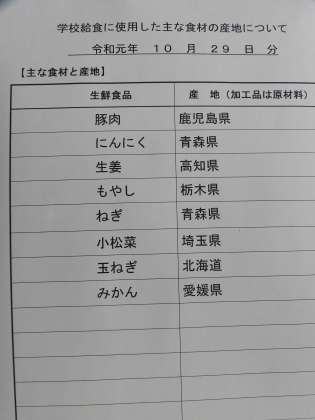 学校給食に使用した主な食材の産地について
令和元年 10 月 29 日 分
【主な食材と産地】
生鮮食品 産 地（加工品は原材料）
豚肉 鹿児島県
にんにく 青森県
生姜 高知県
もやし 栃木県
ねぎ 青森県
小松菜 埼玉県
玉ねぎ 北海道
みかん 愛媛県